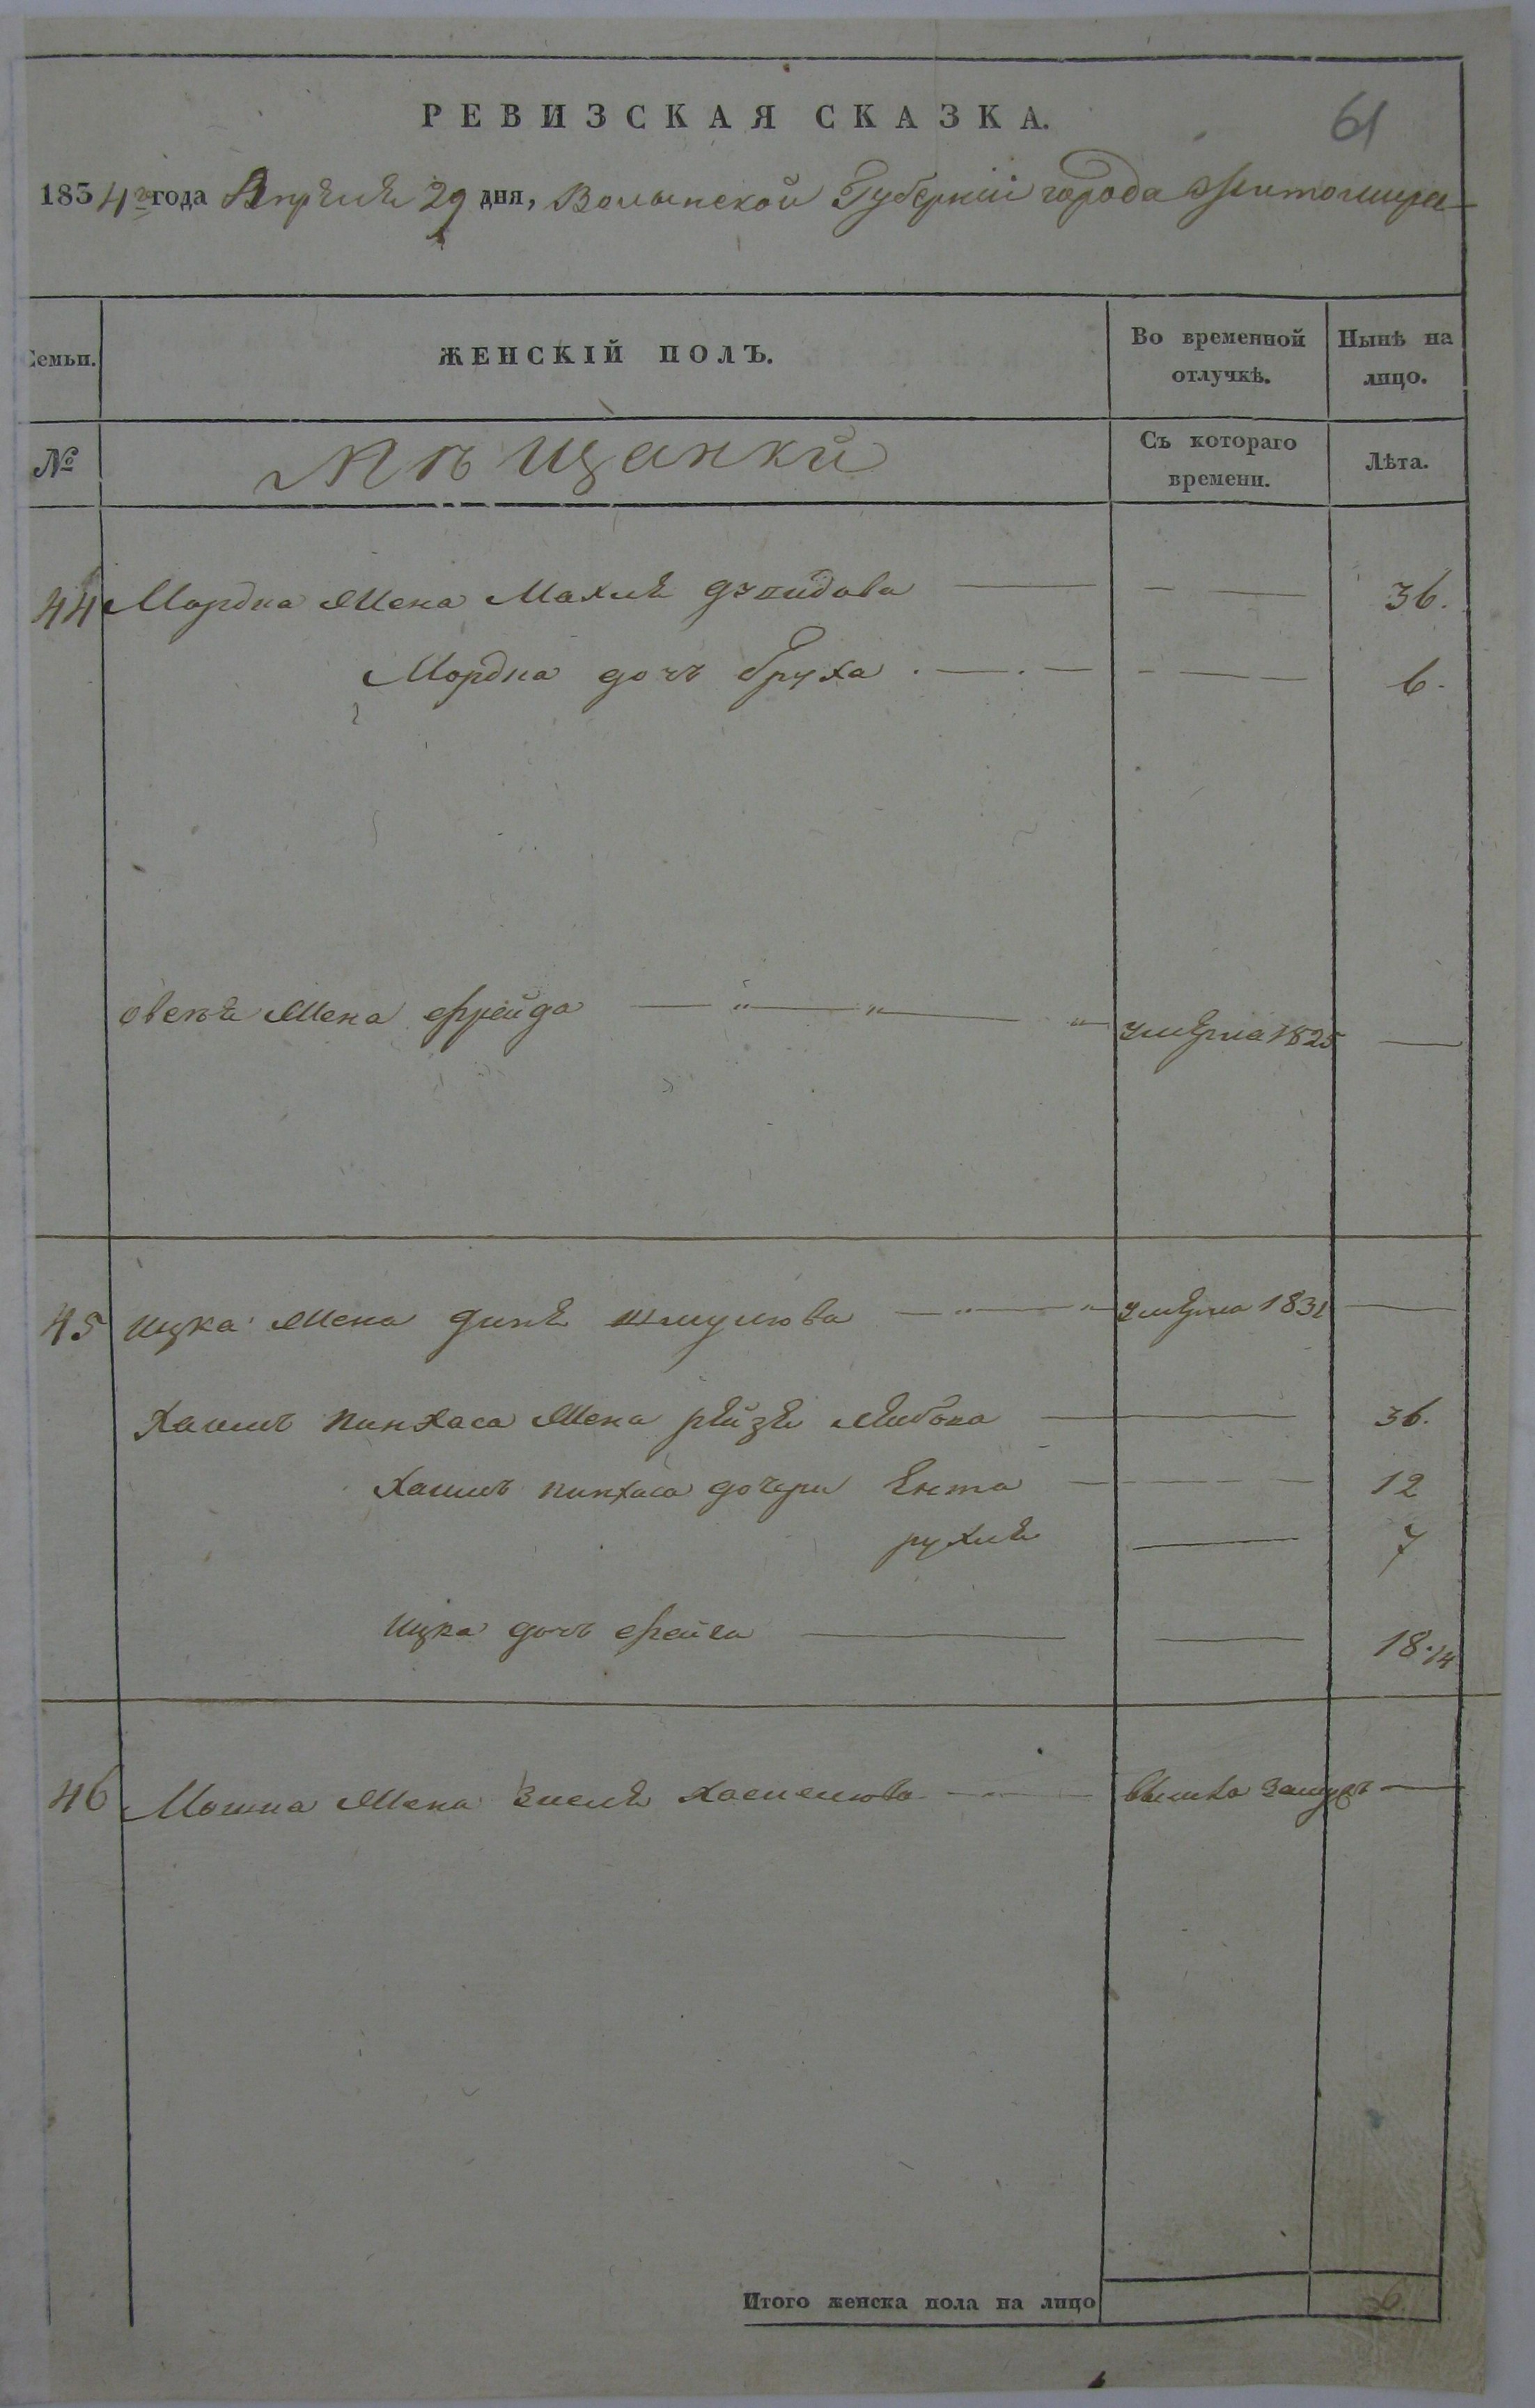 РЕВИЗСКАЯ СКАЗКА.
61
1834го года Апрѣля 29 дня, Волынской Губерніи города Житомира
Семьи.
ЖЕНСКІЙ ПОЛЪ.
Во временной
отлучкѣ.
Нынѣ на
лицо.
№
Мѣщанки
Съ котораго
времени.
Лѣта.
44 Мордка Жена Махлѣ — — — 36.
Мордка дочь бруха . — . — — — — 6.
Жена фрейда — " — " — " умѣрла 1825 —
45 Ицка Жена динѣ шмулюва — " — " умѣрла 1831 —
Хаимъ пинхаса Жена рѣйзѣ — — 36.
Хаимъ пинхаса дочери Ента — — — — 12
рухлѣ — 7
Ицка дочь фейга — — 18.14
46 Мошка Жена зислѣ — вышла замужъ —
Итого женска пола на лицо 6.